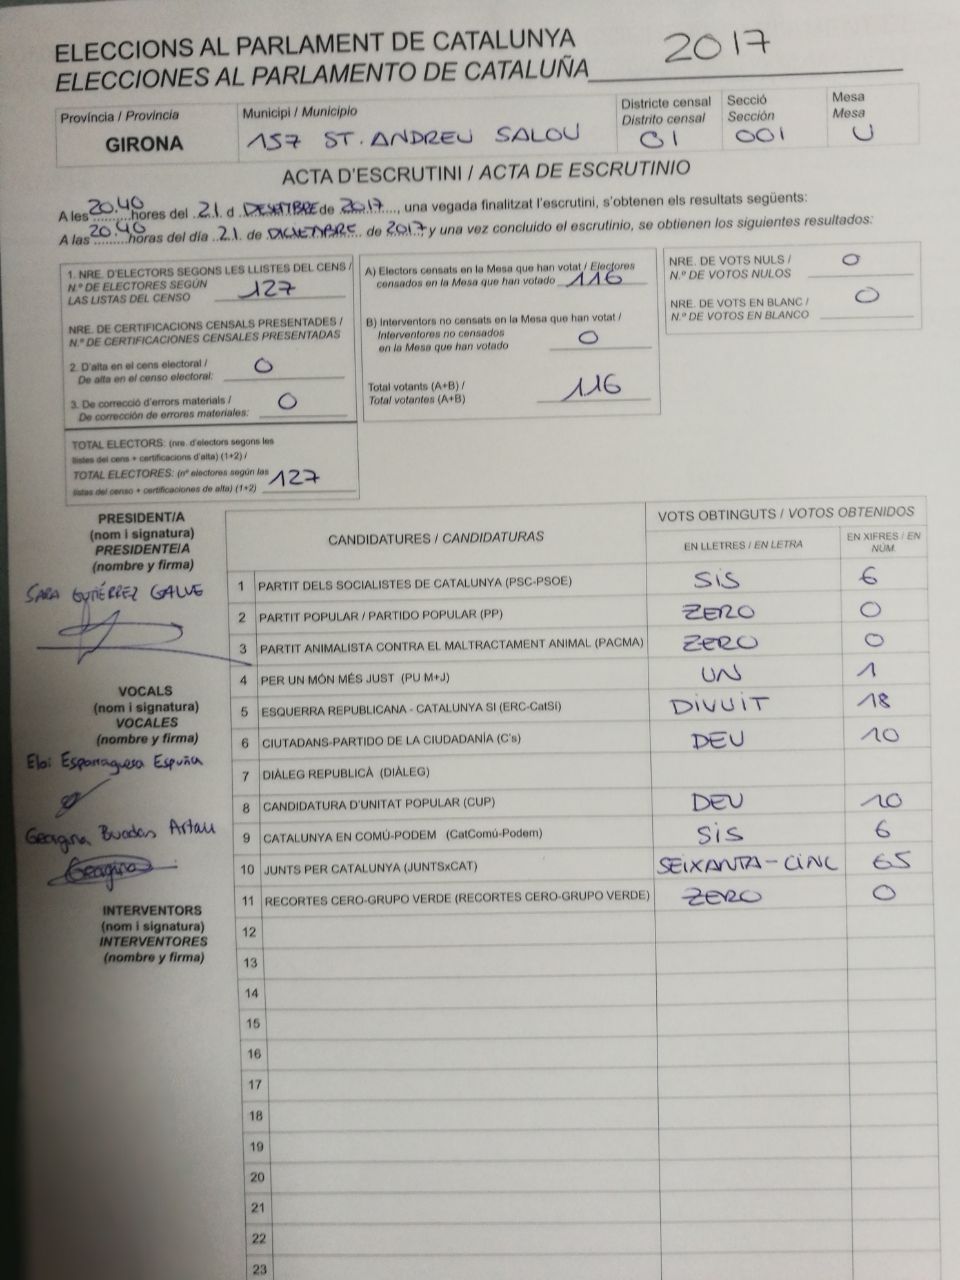 ELECCIONS AL PARLAMENT DE CATALUNYA
ELECCIONES AL PARLAMENTO DE CATALUÑA 2017
Província / Provincia
GIRONA
Municipi / Municipio
157 ST. ANDREU SALOU
Districte censal
Distrito censal
01
Secció
Sección
001
Mesa
Mesa
U
ACTA D'ESCRUTINI / ACTA DE ESCRUTINIO
A les 20.40 hores del 21 d DESEMBRE de 2017, una vegada finalitzat l'escrutini, s'obtenen els resultats següents:
A las 20.40 horas del día 21 de DICIEMBRE de 2017 y una vez concluido el escrutinio, se obtienen los siguientes resultados:
1. NRE. D'ELECTORS SEGONS LES LLISTES DEL CENS /
N.º DE ELECTORES SEGÚN
LAS LISTAS DEL CENSO 127
NRE. DE CERTIFICACIONS CENSALS PRESENTADES /
N.º DE CERTIFICACIONES CENSALES PRESENTADAS
2. D'alta en el cens electoral /
De alta en el censo electoral: 0
3. De correcció d'errors materials /
De corrección de errores materiales: 0
TOTAL ELECTORS: (nre. d'electors segons les
llistes del cens + certificacions d'alta) (1+2) /
TOTAL ELECTORES: (nº electores según las
listas del censo + certificaciones de alta) (1+2) 127
A) Electors censats en la Mesa que han votat / Electores
censados en la Mesa que han votado 116
B) Interventors no censats en la Mesa que han votat /
Interventores no censados
en la Mesa que han votado 0
Total votants (A+B) /
Total votantes (A+B) 116
NRE. DE VOTS NULS /
N.º DE VOTOS NULOS 0
NRE. DE VOTS EN BLANC /
N.º DE VOTOS EN BLANCO 0
PRESIDENT/A
(nom i signatura)
PRESIDENTE/A
(nombre y firma)
SARA GUTIÉRREZ GALVE
VOCALS
(nom i signatura)
VOCALES
(nombre y firma)
Eloi Esparraguera Espuña
Georgina Buadas Artau
Georgina
INTERVENTORS
(nom i signatura)
INTERVENTORES
(nombre y firma)
CANDIDATURES / CANDIDATURAS
VOTS OBTINGUTS / VOTOS OBTENIDOS
EN LLETRES / EN LETRA
EN XIFRES / EN NÚM.
1 PARTIT DELS SOCIALISTES DE CATALUNYA (PSC-PSOE) SIS 6
2 PARTIT POPULAR / PARTIDO POPULAR (PP) ZERO 0
3 PARTIT ANIMALISTA CONTRA EL MALTRACTAMENT ANIMAL (PACMA) ZERO 0
4 PER UN MÓN MÉS JUST (PU M+J) UN 1
5 ESQUERRA REPUBLICANA - CATALUNYA SI (ERC-CatSí) DIVUIT 18
6 CIUTADANS-PARTIDO DE LA CIUDADANÍA (C's) DEU 10
7 DIÀLEG REPUBLICÀ (DIÀLEG)
8 CANDIDATURA D'UNITAT POPULAR (CUP) DEU 10
9 CATALUNYA EN COMÚ-PODEM (CatComú-Podem) SIS 6
10 JUNTS PER CATALUNYA (JUNTSxCAT) SEIXANTA-CINC 65
11 RECORTES CERO-GRUPO VERDE (RECORTES CERO-GRUPO VERDE) ZERO 0
12
13
14
15
16
17
18
19
20
21
22
23